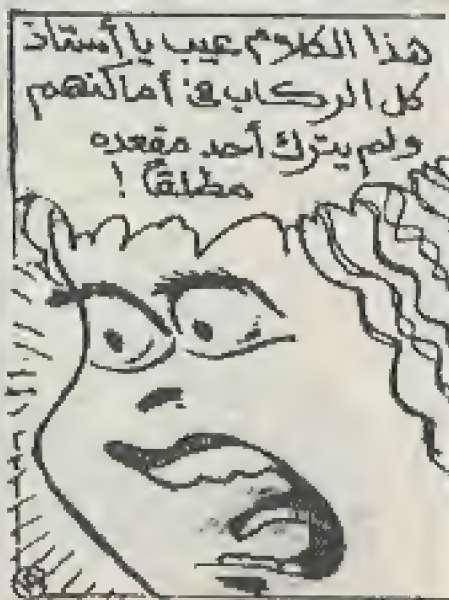 هذا الكلام عيب يا أستاذ
كل الركاب في أماكنهم
ولم يترك أحد مقعده
مطلقاً !